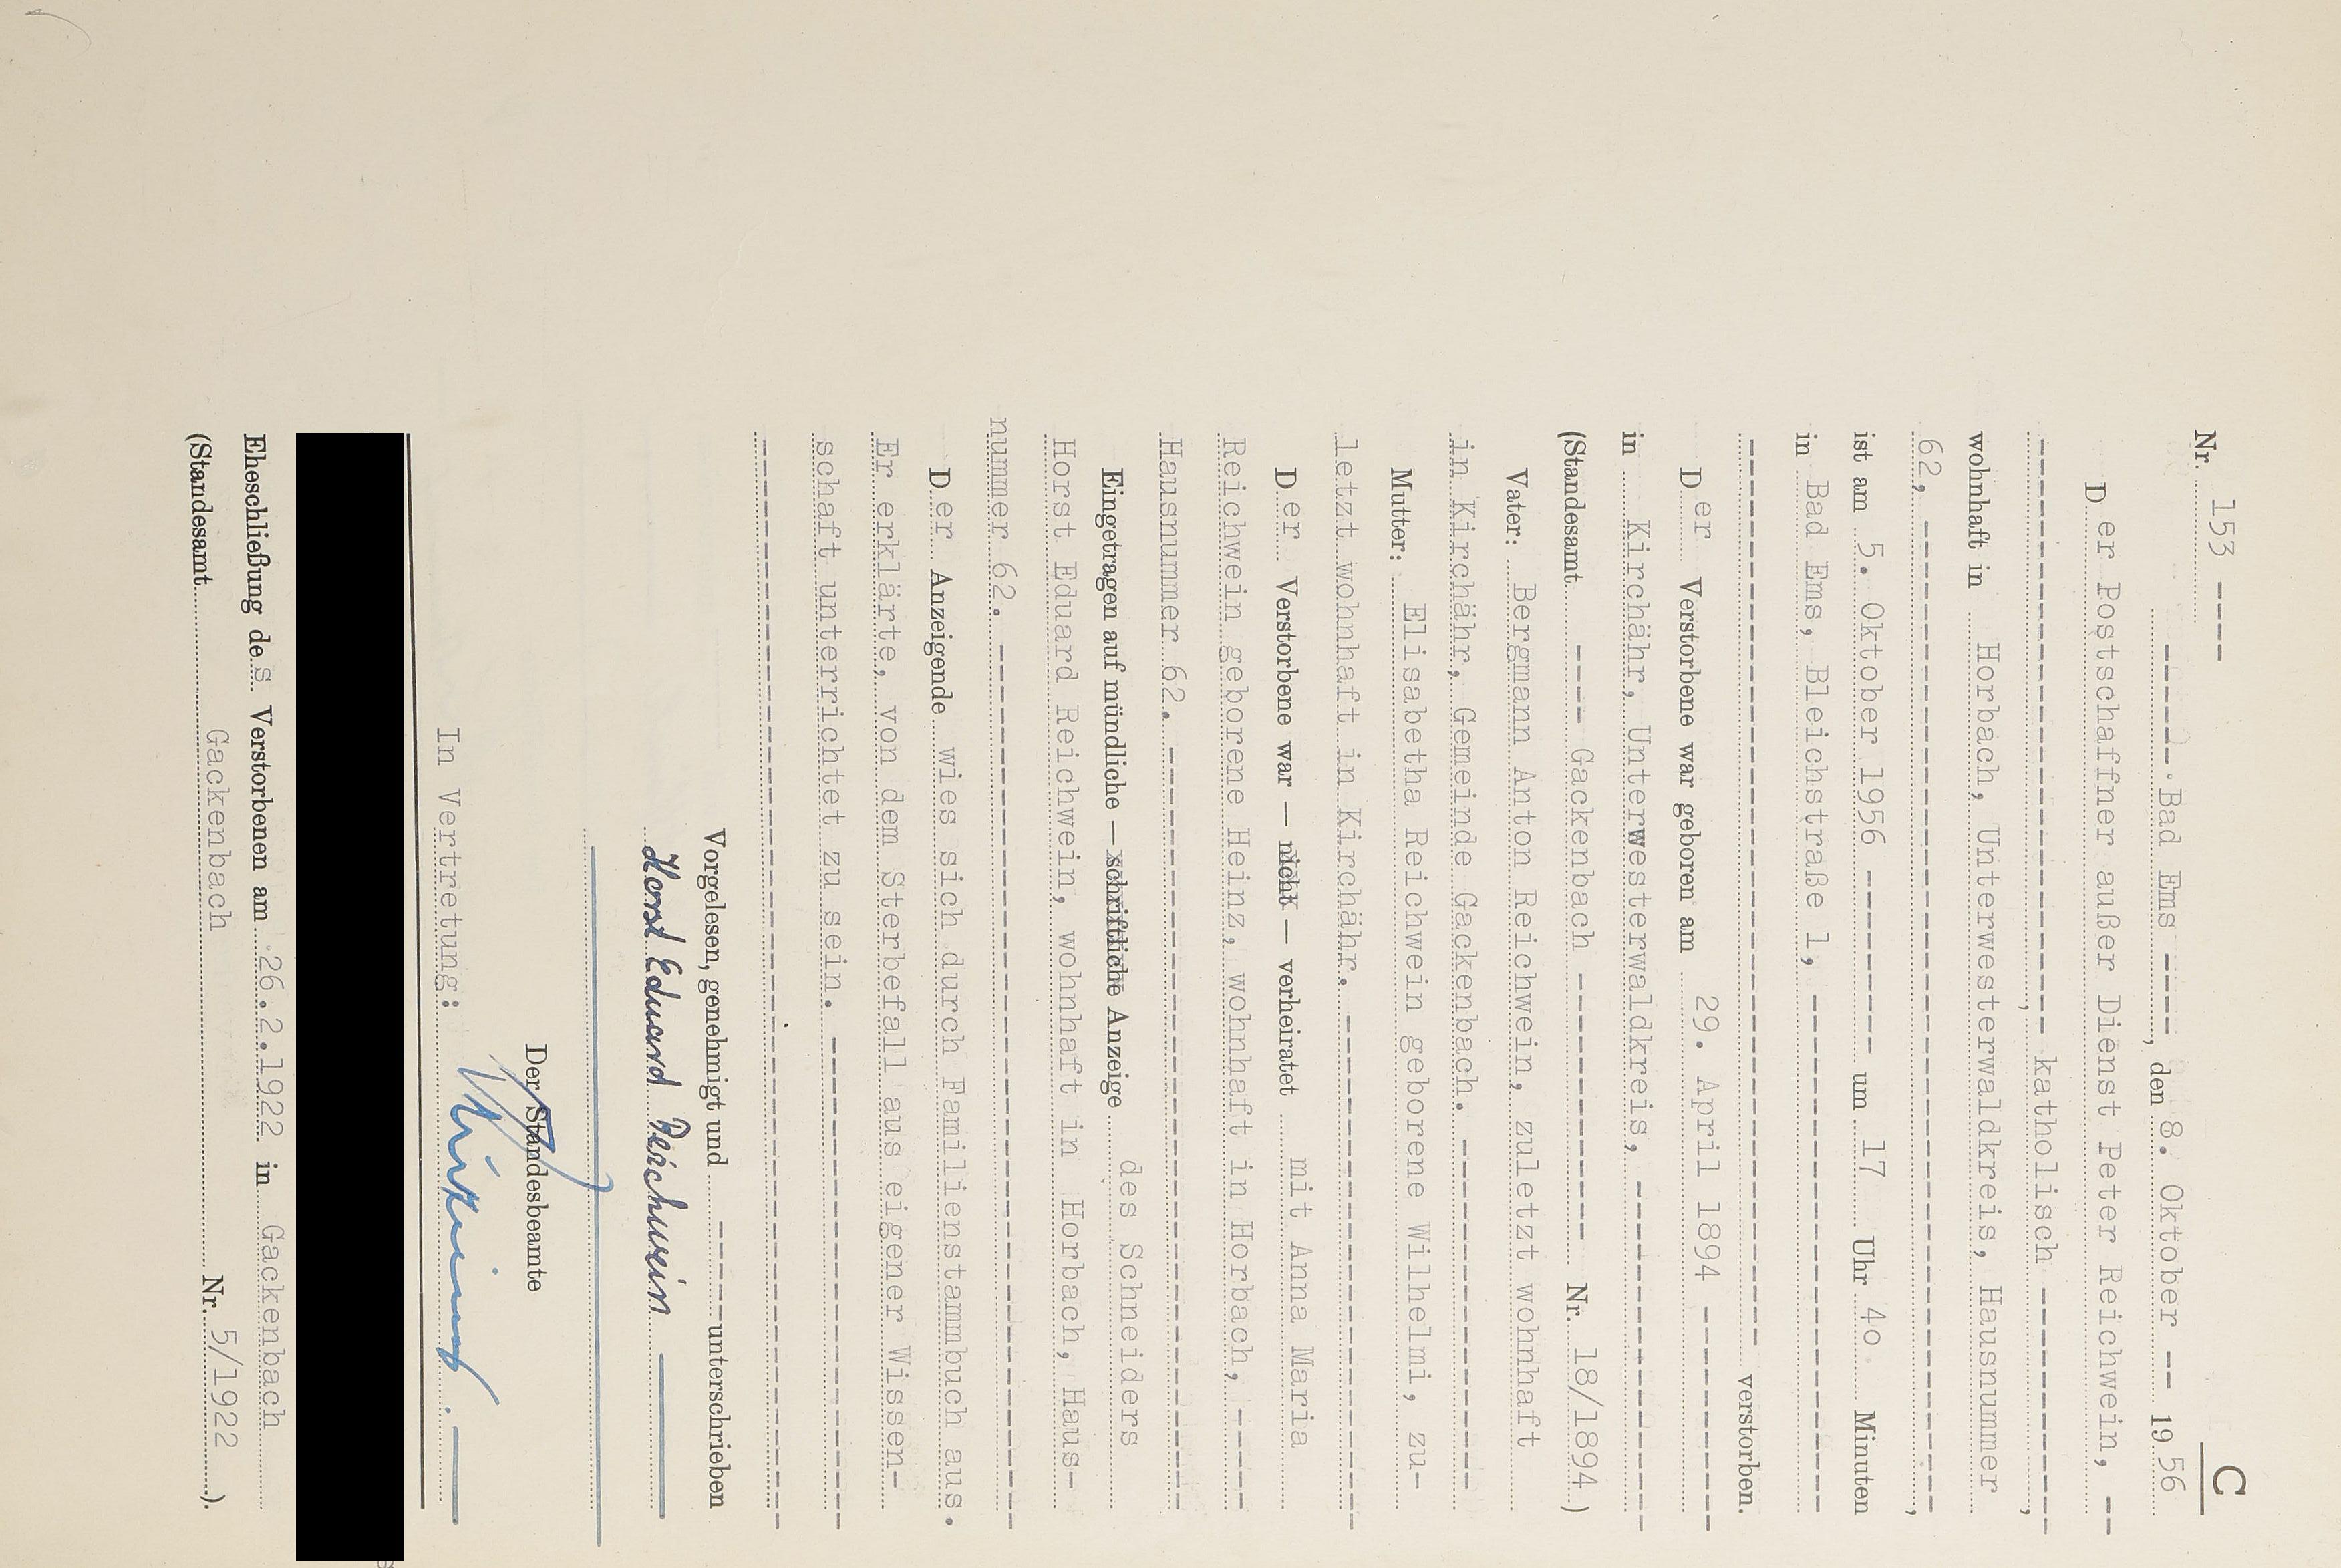 C
Nr. 153 ----
-----·Bad Ems ----, den 8. Oktober -- 19 56
D er Postschaffner außer Dienst Peter Reichwein, --
---------------------------, katholisch ----------,
wohnhaft in Horbach, Unterwesterwaldkreis, Hausnummer
62, -----------------------------------------------,
ist am 5. Oktober 1956 --------- um 17 Uhr 4o Minuten
in Bad Ems, Bleichstraße 1, ------------------------
------------------------------------------ verstorben.
D er Verstorbene war geboren am 29. April 1894 ----------
in Kirchähr, Unterwesterwaldkreis, ----------------
(Standesamt ---- Gackenbach ------------- Nr. 18/1894.)
Vater: Bergmann Anton Reichwein, zuletzt wohnhaft
in Kirchähr, Gemeinde Gackenbach. ----------------
Mutter: Elisabetha Reichwein geborene Wilhelmi, zu-
letzt wohnhaft in Kirchähr. -----------------------
D er Verstorbene war — nicht — verheiratet mit Anna Maria
Reichwein geborene Heinz, wohnhaft in Horbach, -----
Hausnummer 62. -----------------------------------
Eingetragen auf mündliche — schriftliche Anzeige des Schneiders
Horst Eduard Reichwein, wohnhaft in Horbach, Haus-
nummer 62. ----------------------------------------
D er Anzeigende wies sich durch Familienstammbuch aus.
Er erklärte, von dem Sterbefall aus eigener Wissen-
schaft unterrichtet zu sein. ----------------------
--------------------------------------------------
Vorgelesen, genehmigt und ------ unterschrieben
Horst Eduard Reichwein
Der Standesbeamte
In Vertretung:
Eheschließung des Verstorbenen am 26.2.1922 in Gackenbach
(Standesamt Gackenbach Nr. 5/1922 ).